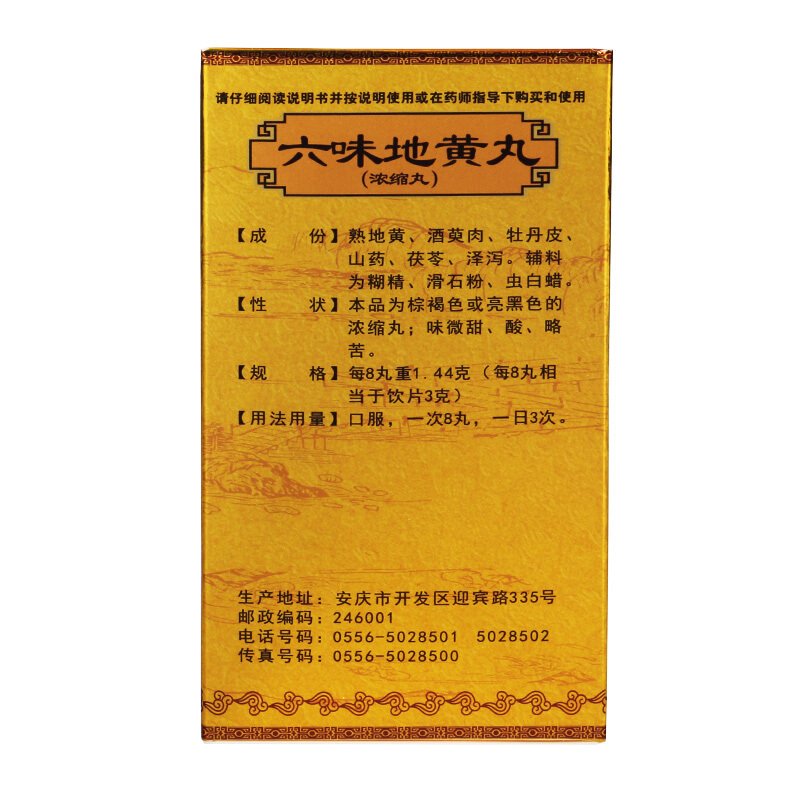 请仔细阅读说明书并按说明使用或在药师指导下购买和使用
六味地黄丸
(浓缩丸)
【成　份】熟地黄、酒萸肉、牡丹皮、
山药、茯苓、泽泻。辅料
为糊精、滑石粉、虫白蜡。
【性　状】本品为棕褐色或亮黑色的
浓缩丸；味微甜、酸、略
苦。
【规　格】每8丸重1.44克（每8丸相
当于饮片3克）
【用法用量】口服，一次8丸，一日3次。
生产地址：安庆市开发区迎宾路335号
邮政编码：246001
电话号码：0556-5028501 5028502
传真号码：0556-5028500